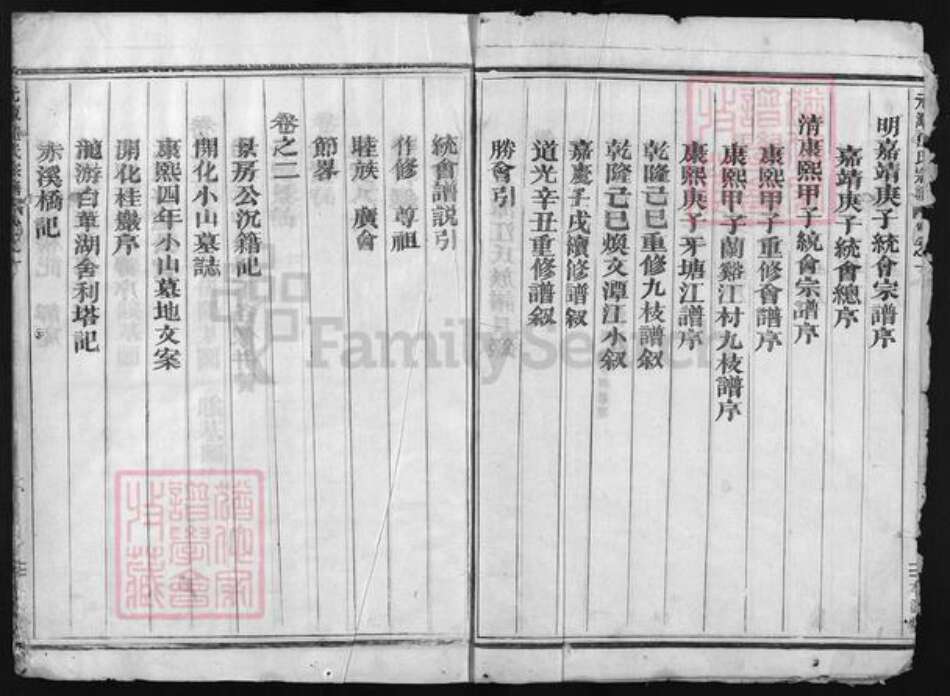 明嘉靖庚子統會宗譜序
嘉靖庚子統會總序
清康熙甲子統會宗譜序
康熙甲子重修會譜序
康熙甲子蘭谿江村九枝譜序
康熙庚子牙塘江譜序
乾隆己巳重修九枝譜叙
乾隆己巳煥文潭江小叙
嘉慶子戌續修譜叙
道光辛丑重修譜叙
勝會引
統會譜説引
作修 尊祖
睦族 廣會
節畧
卷之二
景房公沉籍記
開化小山墓誌
康熙四年小山墓地文案
開化桂巖序
龍游白革湖舍利塔記
赤溪橋記
譜學會
收藏
FamilySearch